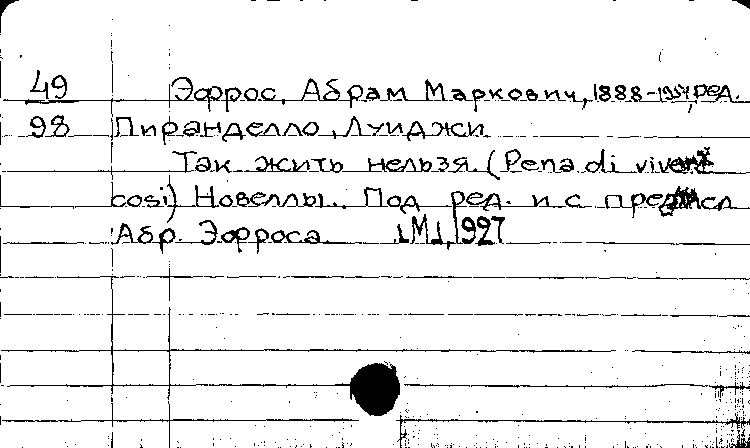 49 Эфрос, Абрам Маркович, 1888-1954, ред.
98 Пиранделло, Луиджи
Так жить нельзя. (Pena di vivere
cosi) Новеллы. Под ред. и с предисл
Абр. Эфроса. [М], 1927